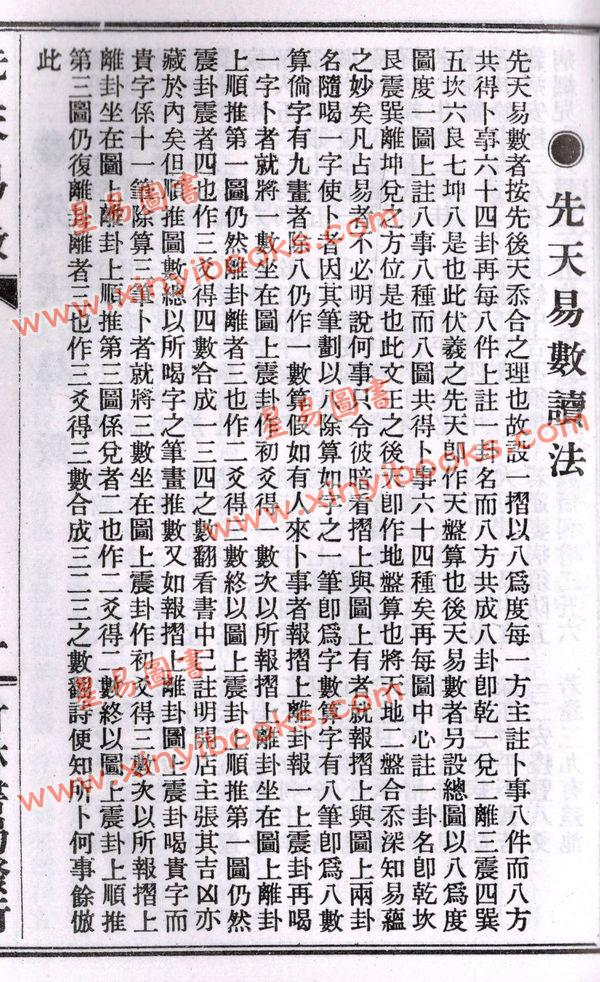 先天易數讀法
先天易數者按先後天忝合之理也故設一摺以八爲度每一方主註卜事八件而八方
共得卜事六十四卦再每八件上註一卦名而八方共成八卦卽乾一兌二離三震四巽
五坎六艮七坤八是也此伏羲之先天卽作天盤算也後天易數者另設總圖以八爲度
圖度一圖上註八事八種而八圖共得卜事六十四種矣再每圖中心註一卦名卽乾坎
艮震巽離坤兌之方位是也此文王之後天卽作地盤算也將天地二盤合忝深知易蘊
之妙矣凡占易者不必明說何事只令彼暗看摺上與圖上有者就報摺上與圖上兩卦
名隨喝一字使卜者因其筆劃以八除算如字之一筆卽爲字數算字有八筆卽爲八數
算倘字有九畫者除八仍作一數算假如有人來卜事者報摺上離卦報一上震卦再喝
一字卜者就將一數坐在圖上震卦作初爻得一數次以所報摺上離卦坐在圖上離卦
上順推第一圖仍然離卦離者三也作二爻得三數終以圖上震卦上順推第一圖仍然
震卦震者四也作三爻得四數合成一三四之數翻看書中已註明開店主張其吉凶亦
藏於內矣但順推圖數總以所喝字之筆畫推數又如報摺上離卦圖上震卦喝貴字而
貴字係十一筆除算三筆卜者就將三數坐在圖上震卦作初爻得三數次以所報摺上
離卦坐在圖上離卦上順推第三圖係兌者二也作二爻得二數終以圖上震卦上順推
第三圖仍復離卦離者三也作三爻得三數合成三二三之數翻詩便知所卜何事餘倣
此
星易圖書
www.xinyibooks.com
星易圖書
www.xinyibooks.com
星易圖書
www.xinyibooks.com